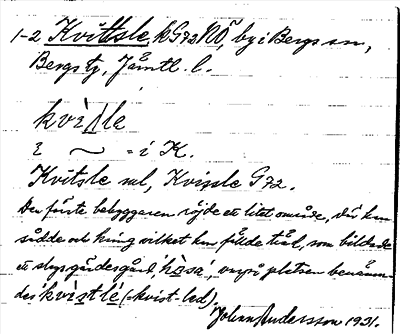 1-2 Kvittsle, k G72 NO, by i Bergs sn,
Bergs tg, Jämtl. l.
kvìs̀le
i ~ = i K.
Kvitsle ml, Kvissle G72.
Den förste bebyggaren röjde ett litet område, där han
sådde och kring vilket han fällde träd, som bildade
ett slags gärdesgård, hàsà, varpå platsen benämn-
des kvìstlè (= kvist-led).
Johan Andersson 1931.